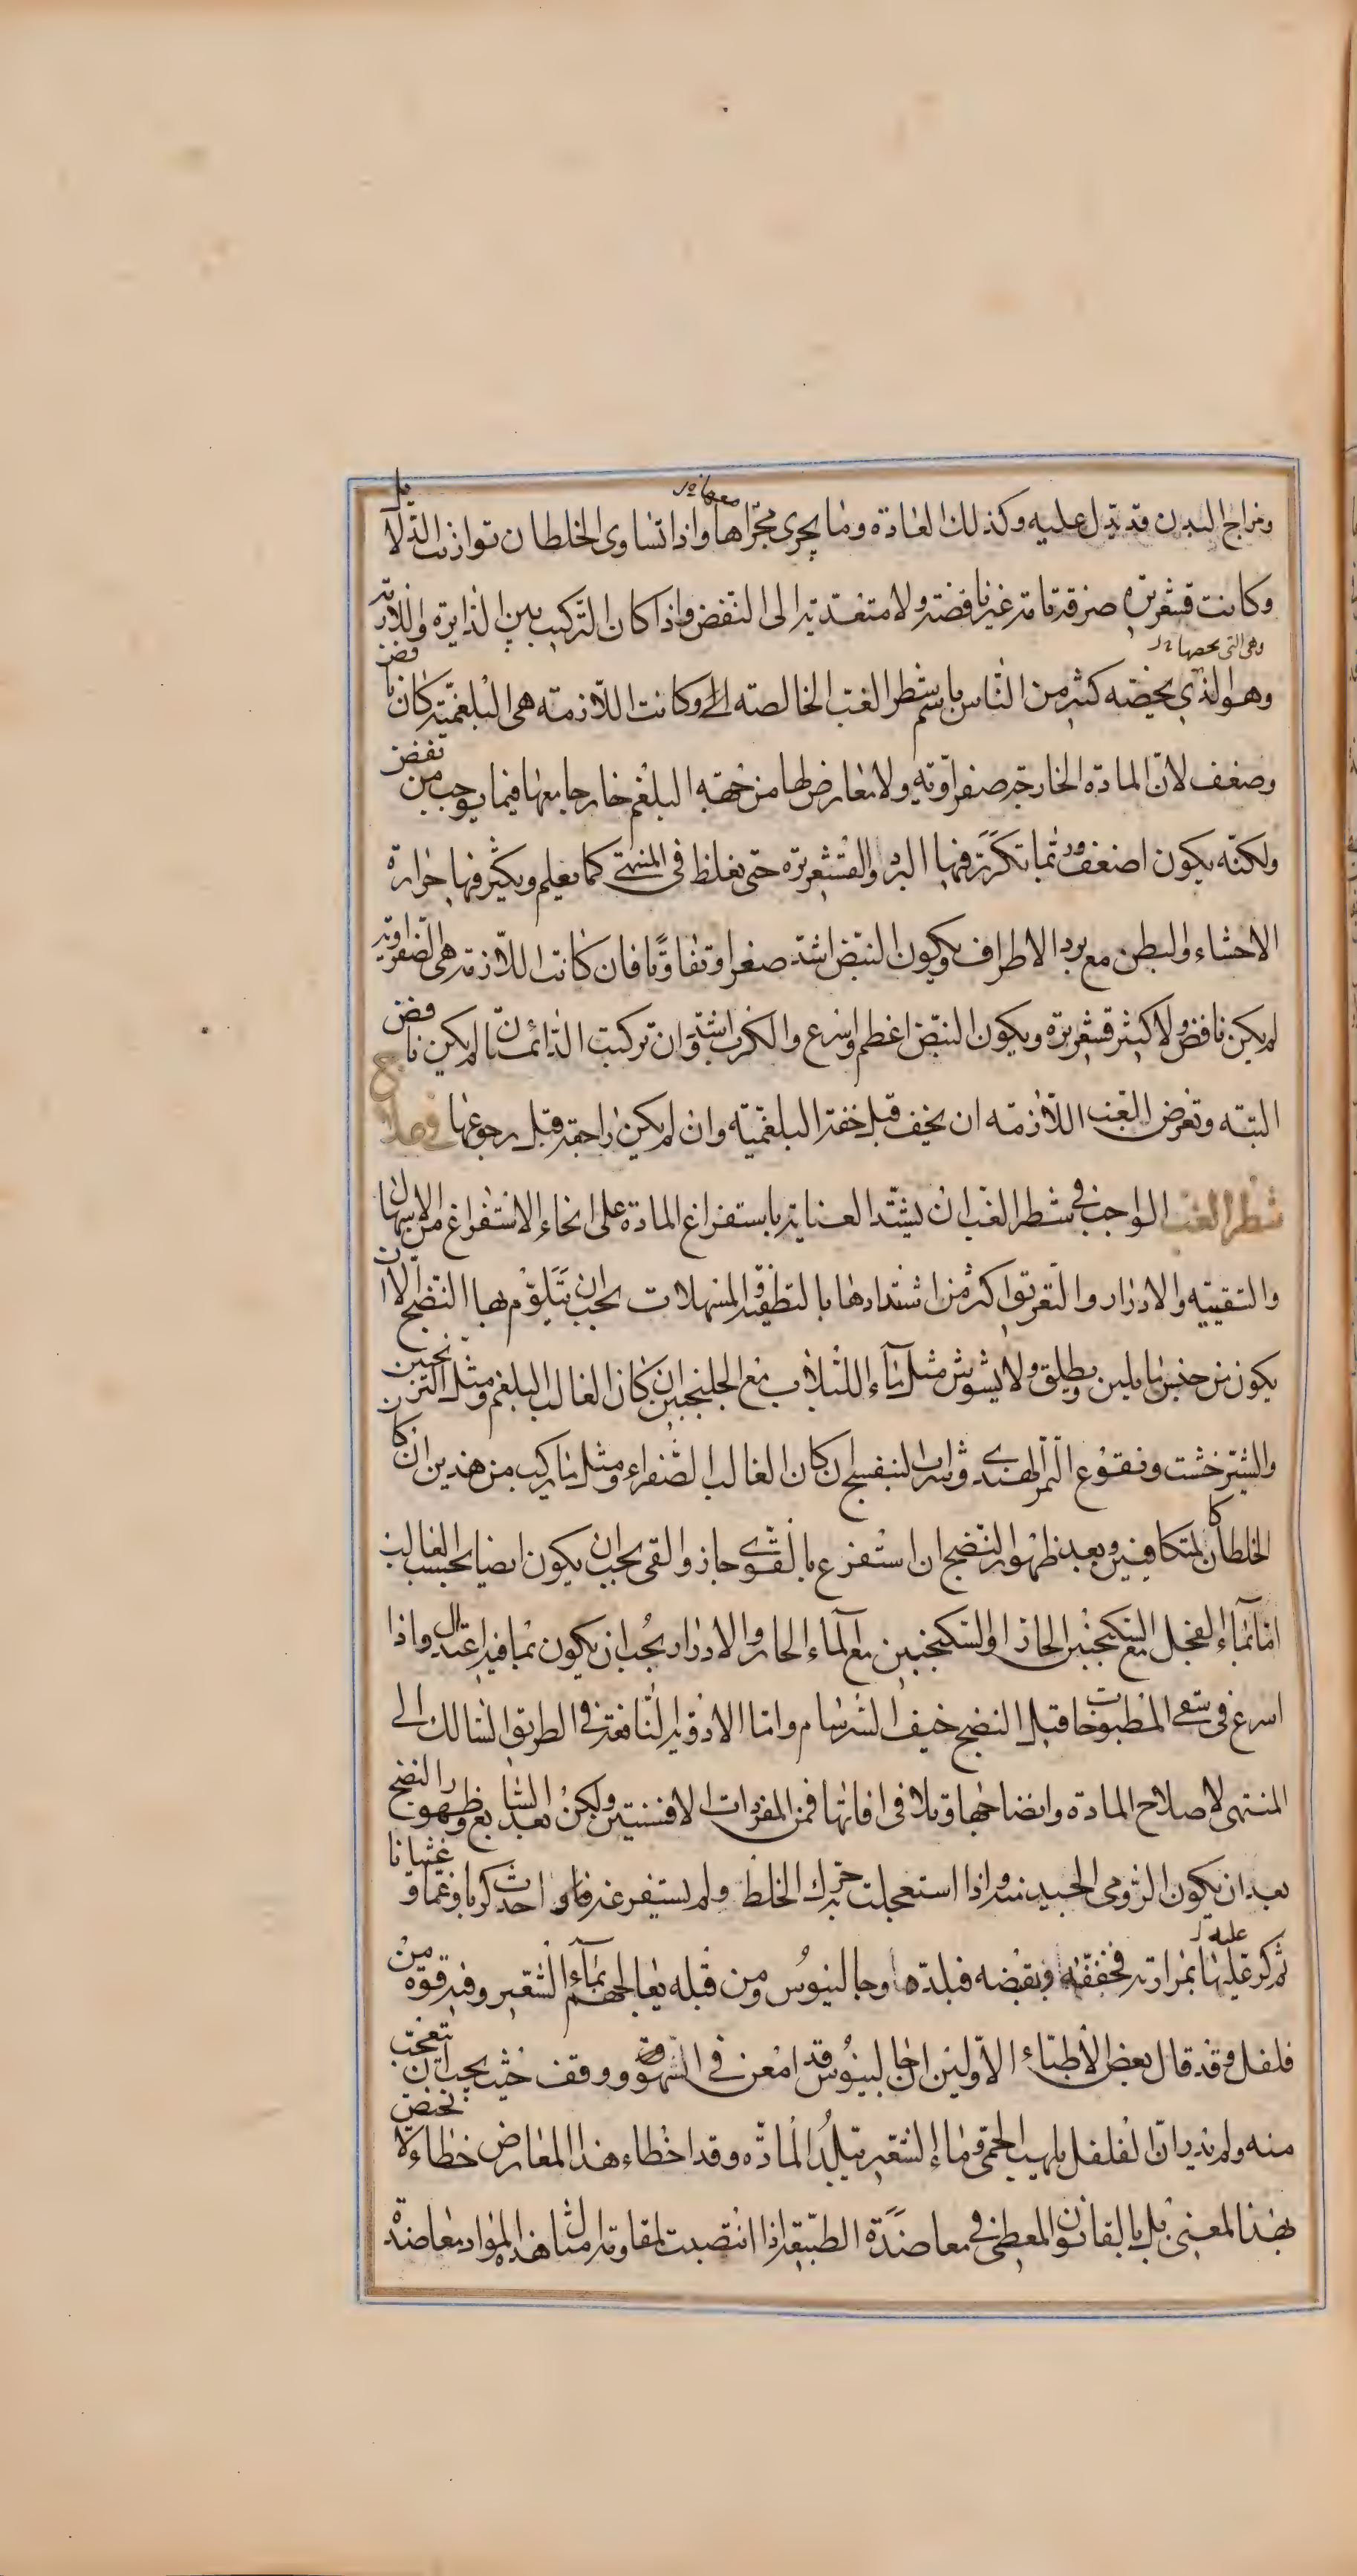 ومزاج البدن قد يدل عليه وكذلك العادة وما يجري مجراها معها واذا تساوى الخلطان توازنت الدلائل
وكانت قشعريرة صرفة تامة غير نافضة ولا متعدية الى النفض واذا كان التركيب بين الدايرة واللازمة
وهى التى يخصها
وهو الذي يخصه كثير من الناس باسم شطر الغب الخالصه وكانت اللازمه هى البلغميه كان نافض
وضعف لان المادة الخارجة صفراويه ولا معارض لها من جهة البلغم خارجا معها فيما يوجب من نفض
ولكنه يكون اضعف وربما تكررت فيها البرد والقشعريرة حتى يغلظ في المنتهى كما يعلم ويكثر فيها حرارة
الاحشاء والبطن مع برد الاطراف ويكون النبض اشد صغرا وتفاوتا فان كانت اللازمة هى الصفراوية
لم يكن نافض ولا كثير قشعريرة ويكون النبض اعظم واسرع والكرب اشد وان تركبت الدائمتان لم يكن نافض
البته وتعرض الغب اللازمه ان يخف قبل خفة البلغميه وان لم يكن راحة قبل رجوعها في علاج
شطر الغب الواجب في شطر الغب ان يشتد العناية باستفراغ المادة على انحاء الاستفراغ من الاسهال
والتقييه والادرار والتعريق اكثر من اشتدادها بالتطفية والمسهلات يجب ان يتلوم بها النضج الا ان
يكون من جنس ما يلين ويطلق ولا يشوش مثل ماء اللبلاب مع الجلنجبين ان كان الغالب البلغم ومثل الترنجبين
والشيرخشت ونقوع التمر الهندي وشراب البنفسج ان كان الغالب الصفراء ومثل ما يركب من هذين ان كان
الخلطان كالمتكافيين وبعد ظهور النضج ان استفرغ بالقوى جاز والقى يجب ان يكون ايضا بحسب الغالب
اما بماء الفجل مع السكنجبين الحار او السكنجبين مع الماء الحار والادرار يجب ان يكون بما فيه اعتدال واذا
اسرع فى سقى المطبوخات قبل النضج خيف السرسام واما الادوية النافعة في الطريق السالك الى
المنتهى لاصلاح المادة وانضاجها وتلافى افاتها فمن المفردات الافسنتين ولكن بعد السابع وظهور النضج
بعد ان يكون الرومى الجيد منه واذا استعجلت حرك الخلط ولم يستفرغه فاحدث كربا وغما وغثيانا
عليه
ثم كر عليها بمرارته فجففه وبقبضه فبلده وجالينوس ومن قبله يعالجهم بماء الشعير وفيه قوة من
فلفل وقد قال بعض الاطباء الاولين ان جالينوس قد امعن في السهو ووقف حيث يجب ان يتعجب
منه ولم يدر ان الفلفل يلهب الحمى وماء الشعير يبلد المادة وقد اخطاء هذا المعارض خطاء لا يختص
بهذا المعنى بل بالقانون المعطى في معاضدة الطبيعة اذا انتصبت لمقاومة امثال هذه المواد معاضدة